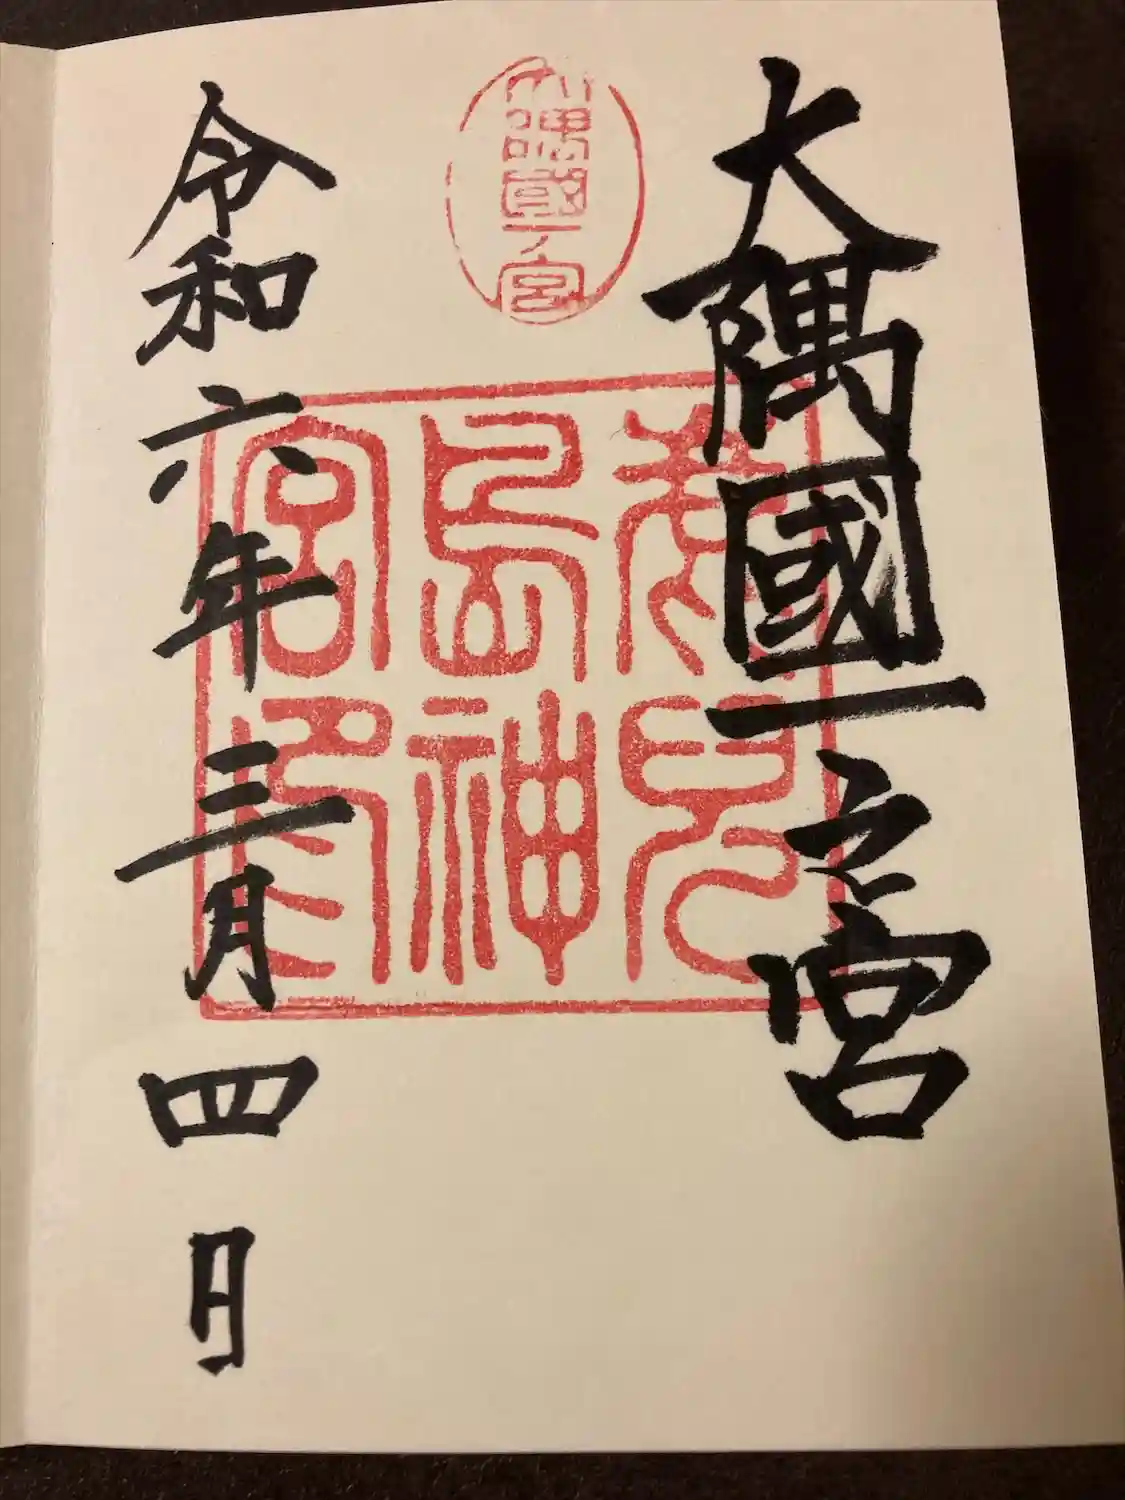 大隅國一之宮
大隅國一ノ宮
鹿児
島神
宮印
令和六年三月四日